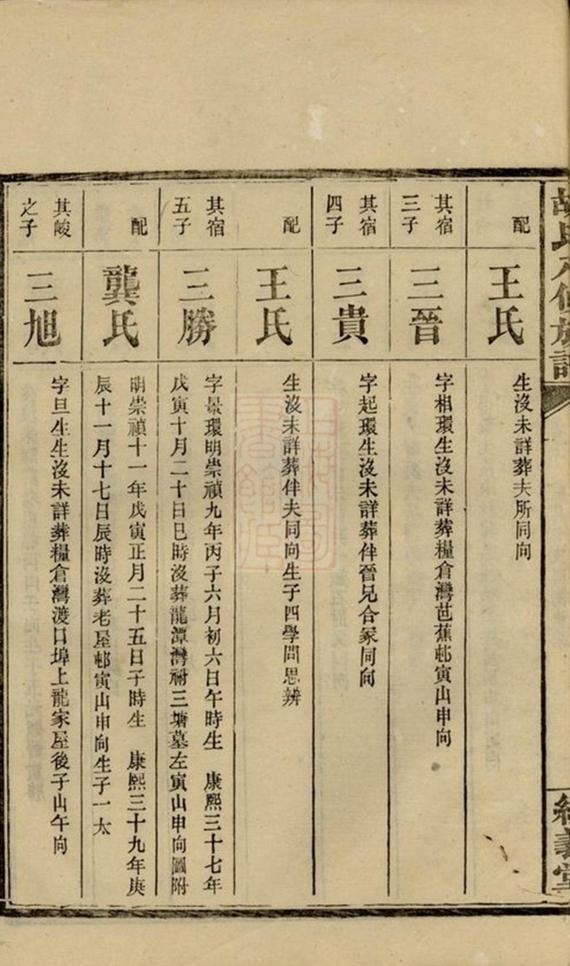 胡氏八修族譜
經義堂
配
王氏
生沒未詳葬夫所同向
其宿
三子
三晉
字相環生沒未詳葬糧倉灣芭蕉邨寅山申向
其宿
四子
三貴
字起環生沒未詳葬伴晉兄合冢同向
配
王氏
生沒未詳葬伴夫同向生子四學問思辨
其宿
五子
三勝
字景環明崇禎九年丙子六月初六日午時生　康熙三十七年
戊寅十月二十日巳時沒葬龍潭灣祔三塘墓左寅山申向圖附
配
龔氏
明崇禎十一年戊寅正月二十五日子時生　康熙三十九年庚
辰十一月十七日辰時沒葬老屋邨寅山申向生子一太
其峻
之子
三旭
字旦生生沒未詳葬糧倉灣渡口埠上龍家屋後子山午向